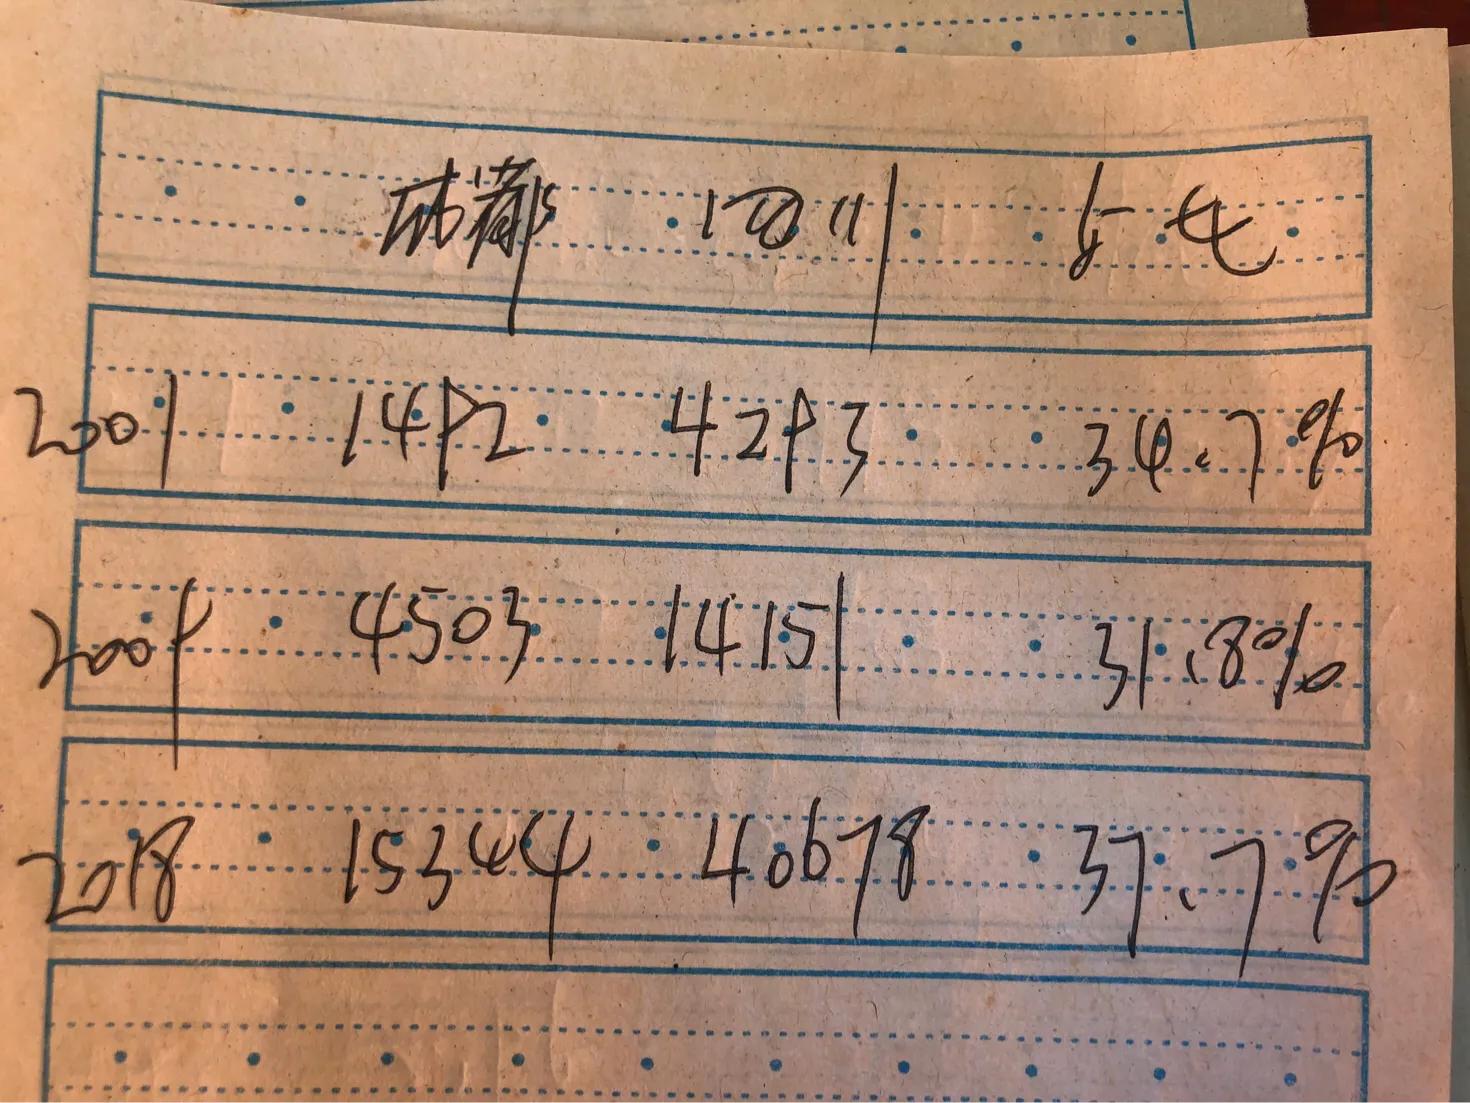 成都 四川 占比
2001 1492 4293 34.7%
2009 4503 14151 31.8%
2018 15344 40678 37.7%